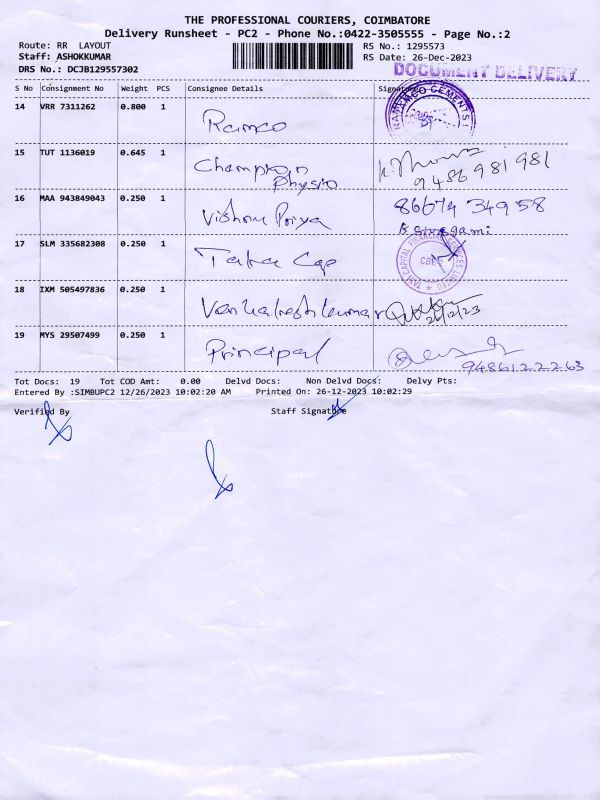 THE PROFESSIONAL COURIERS, COIMBATORE
Delivery Runsheet - PC2 - Phone No.:0422-3505555 - Page No.:2
Route: RR LAYOUT RS No.: 1295573
Staff: ASHOKKUMAR RS Date: 26-Dec-2023
DRS No.: DCJB129557302 DOCUMENT DELIVERY
S No Consignment No Weight PCS Consignee Details Signature
14 VRR 7311262 0.800 1 Ramco
RAMCO CEMENTS
15 TUT 1136019 0.645 1 Champion
Physio 9486981981
16 MAA 943849043 0.250 1 Vishnu Priya 8667434958
B Sivagami
17 SLM 335682308 0.250 1 Tata Cap
TATA CAPITAL FINANCIAL SERVICES LIMITED
CBE
18 IXM 505497836 0.250 1 Venkatesh kumar
26/12/23
19 MYS 29507499 0.250 1 Principal
9486122263
Tot Docs: 19 Tot COD Amt: 0.00 Delvd Docs: Non Delvd Docs: Delvy Pts:
Entered By :SIMBUPC2 12/26/2023 10:02:20 AM Printed On: 26-12-2023 10:02:29
Verified By Staff Signatute